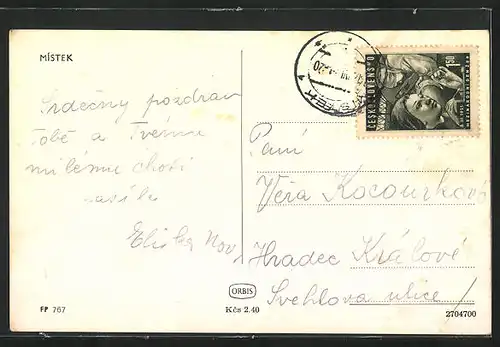 MÍSTEK
ČESKOSLOVENSKO
1.50
Srdečný pozdrav
Tobě a Tvému
milému choti
Eliška Nov
Paní
Věra Kocourková
Hradec Králové
Švehlova ulice
FP 767
ORBIS
Kčs 2.40
2704700